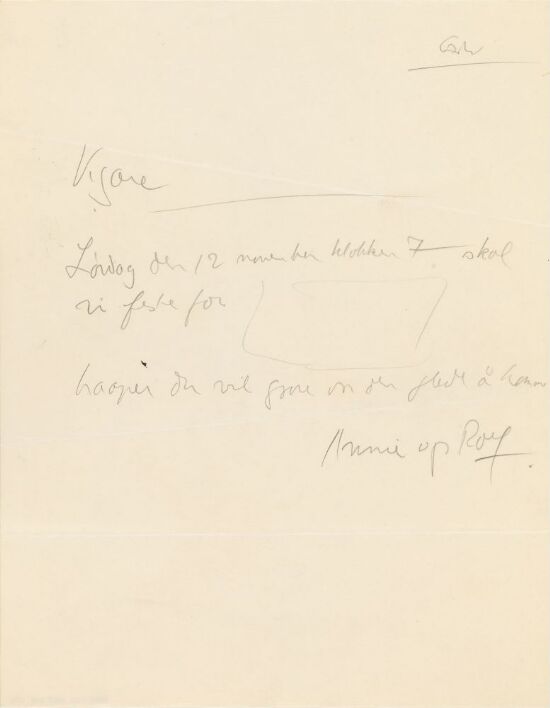 Lördag den 12 november klokken 7 skal
vi feste for
haaper du vil gjøre os den glede å komme
Annie og Rolf